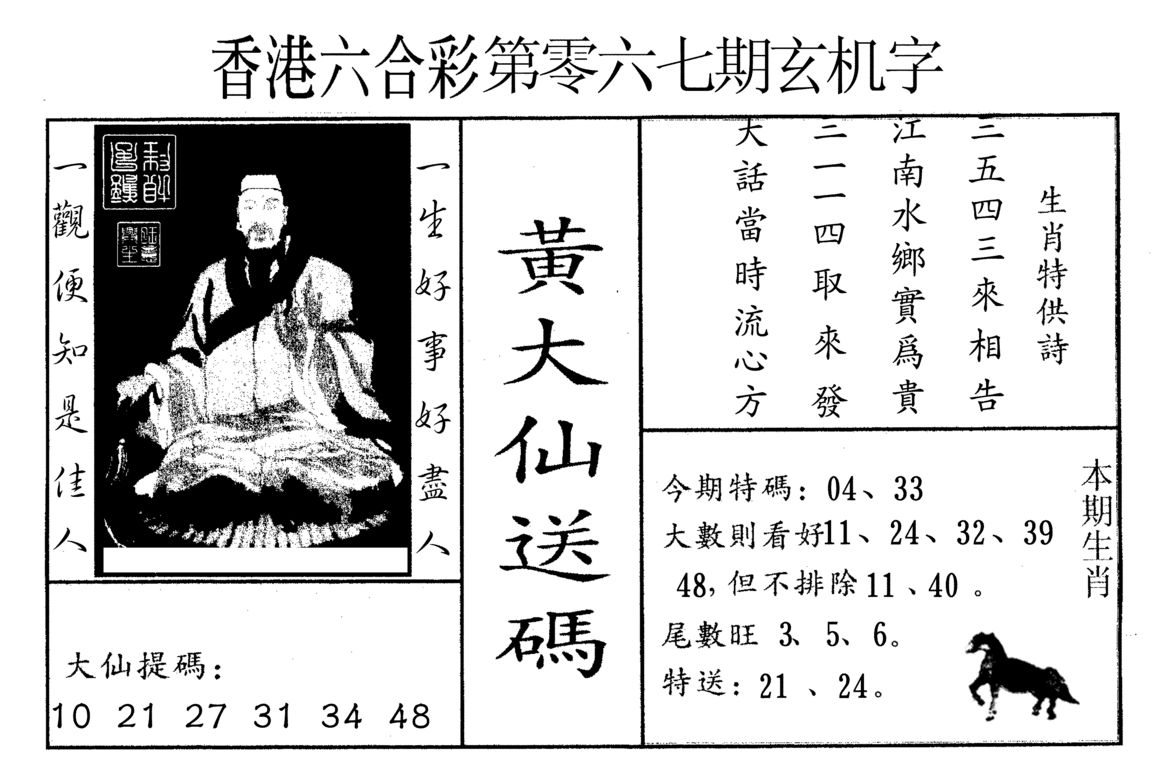 香港六合彩第零六七期玄机字
一生好事好盡人
一觀便知是佳人
黃大仙送碼
生肖特供詩
三五四三來相告
江南水鄉實爲貴
三一一四取來發
大話當時流心方
大仙提碼：
10 21 27 31 34 48
本期生肖
今期特碼：04、33
大數則看好11、24、32、39
48，但不排除11、40。
尾數旺 3、5、6。
特送：21、24。